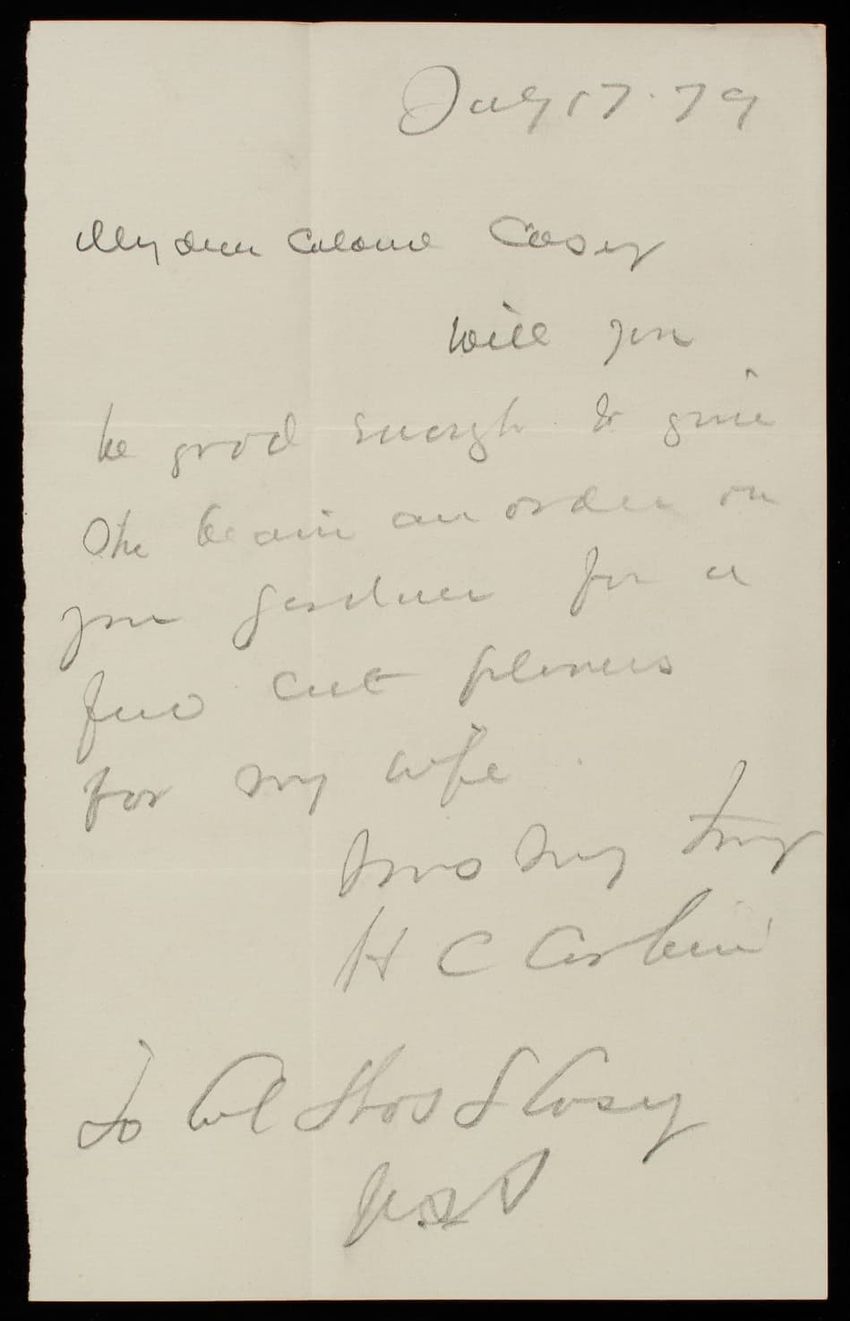 July 17. 79
My dear Colonel Casey
Will you
be good enough to give
the bearer an order on
your gardner for a
few cut flowers
for my wife
Yours very truly
H C Corbin
To Col Thos L Casey